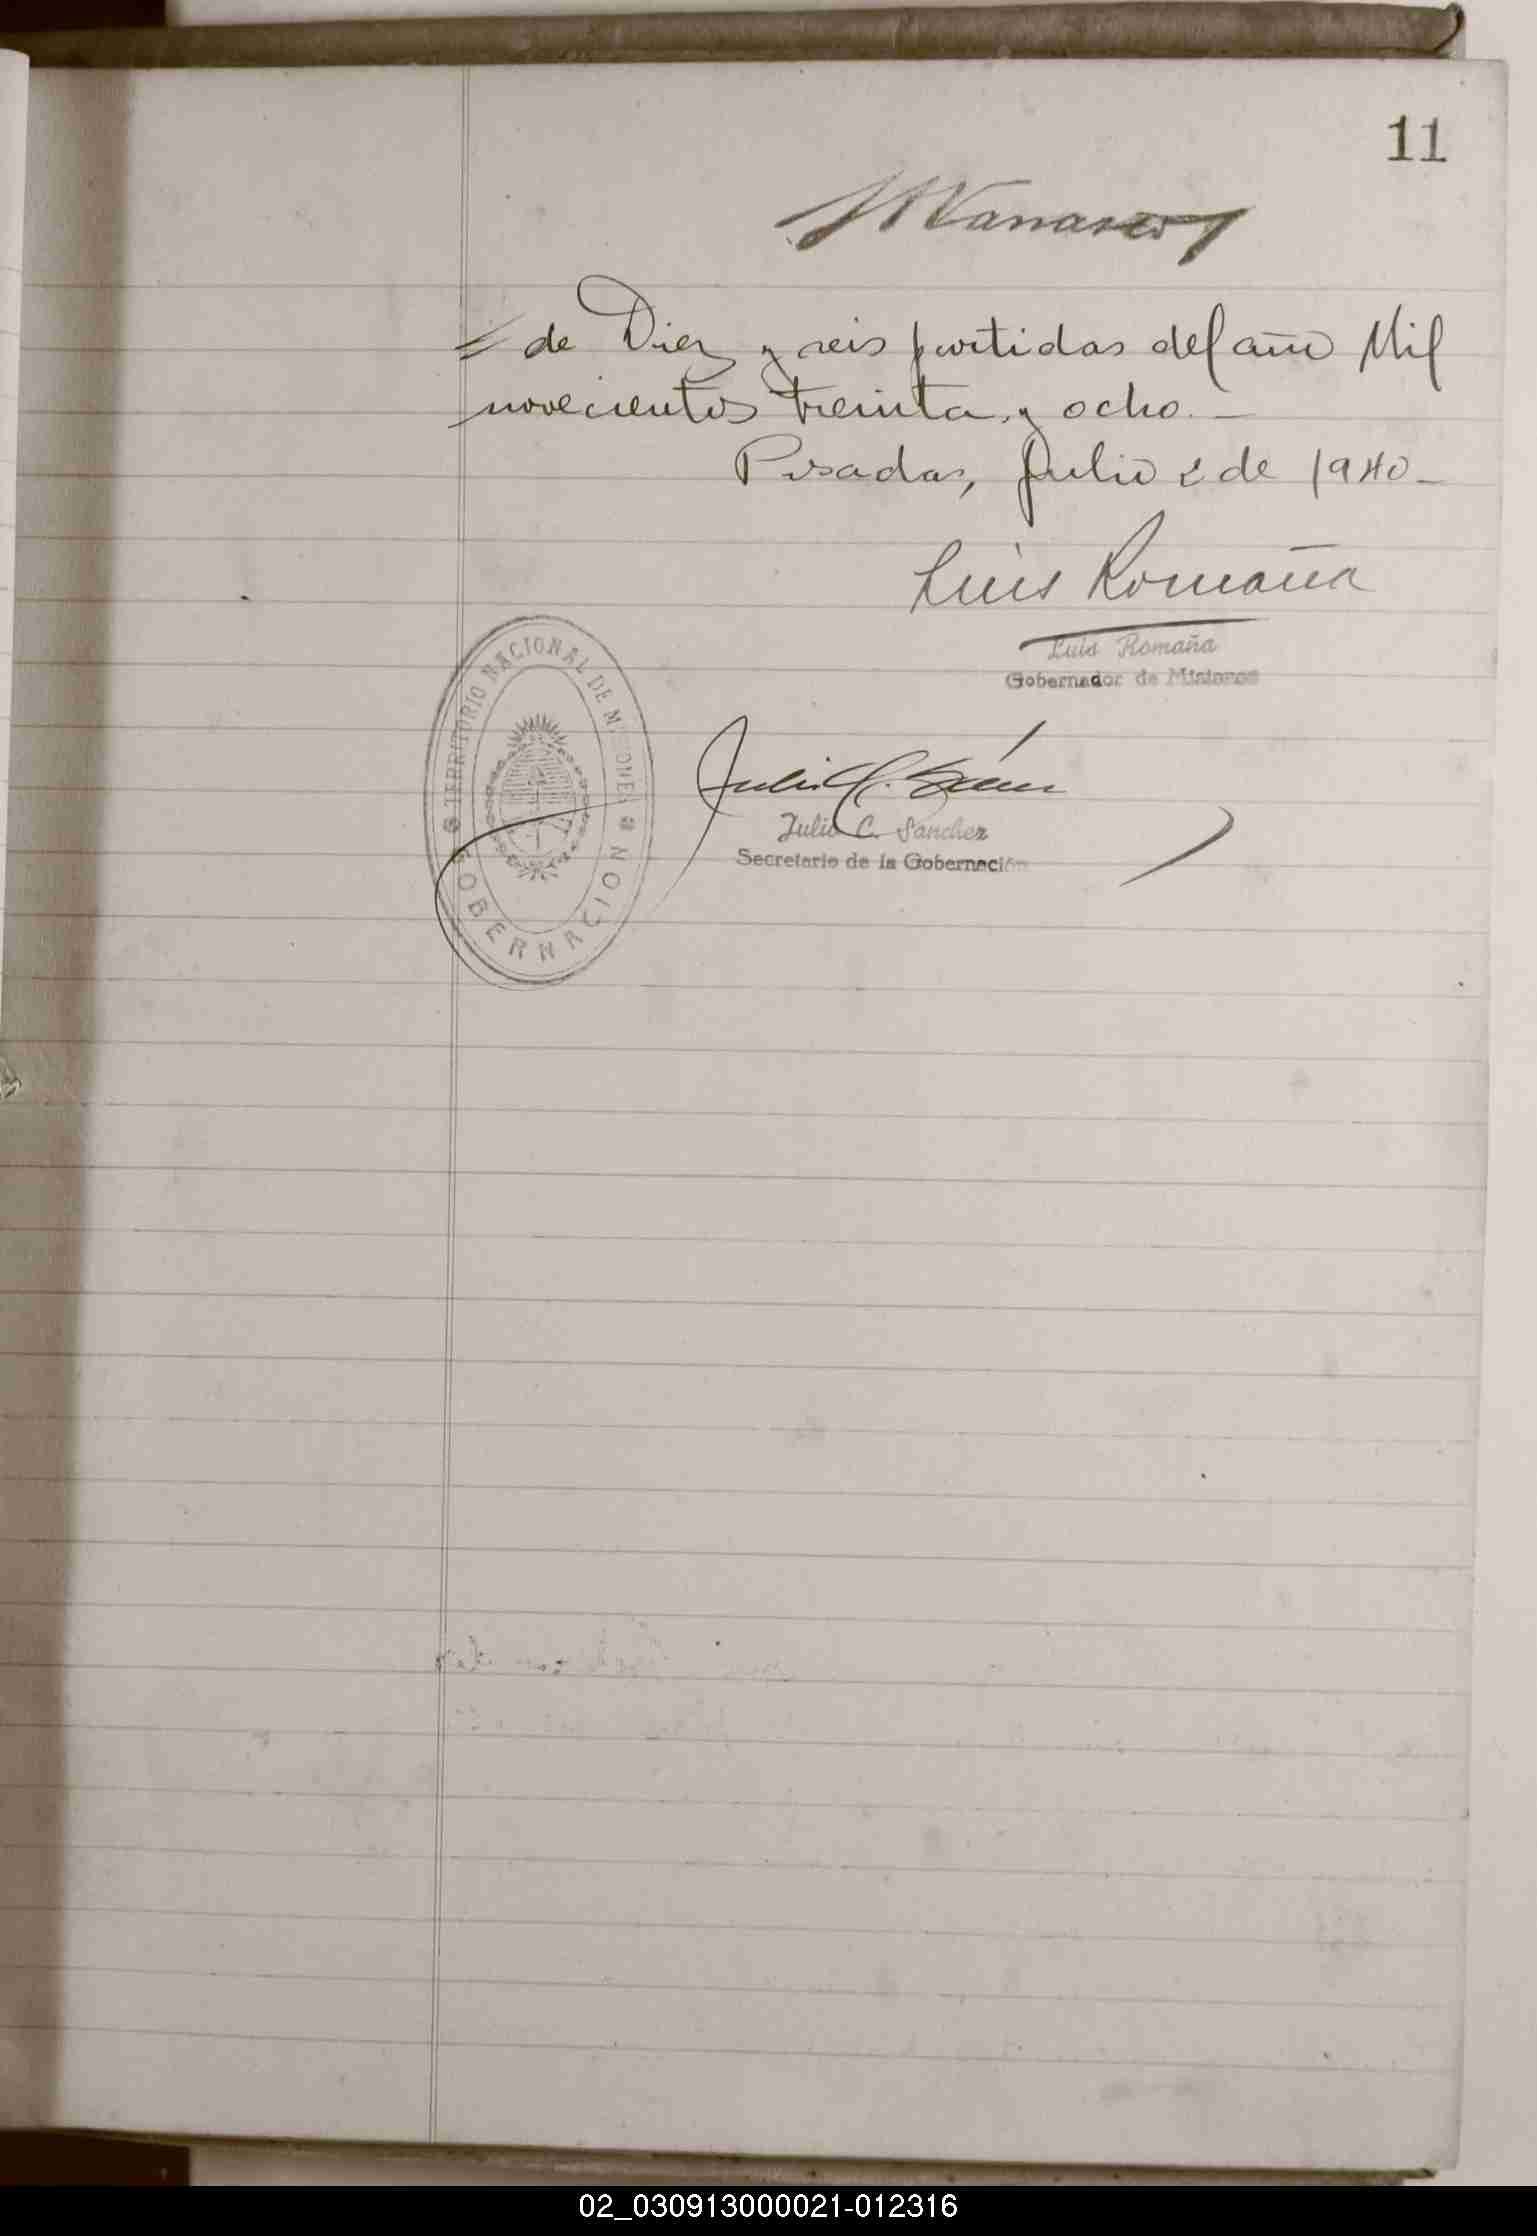 11
= de Diez y seis partidas del año Mil
novecientos treinta y ocho. -
Posadas, Julio 2 de 1940 -
Luis Romaña
Luis Romaña
Gobernador de Misiones
TERRITORIO NACIONAL DE MISIONES
GOBERNACION
Julio C.
Julio C. Sanchez
Secretario de la Gobernación
02_030913000021-012316